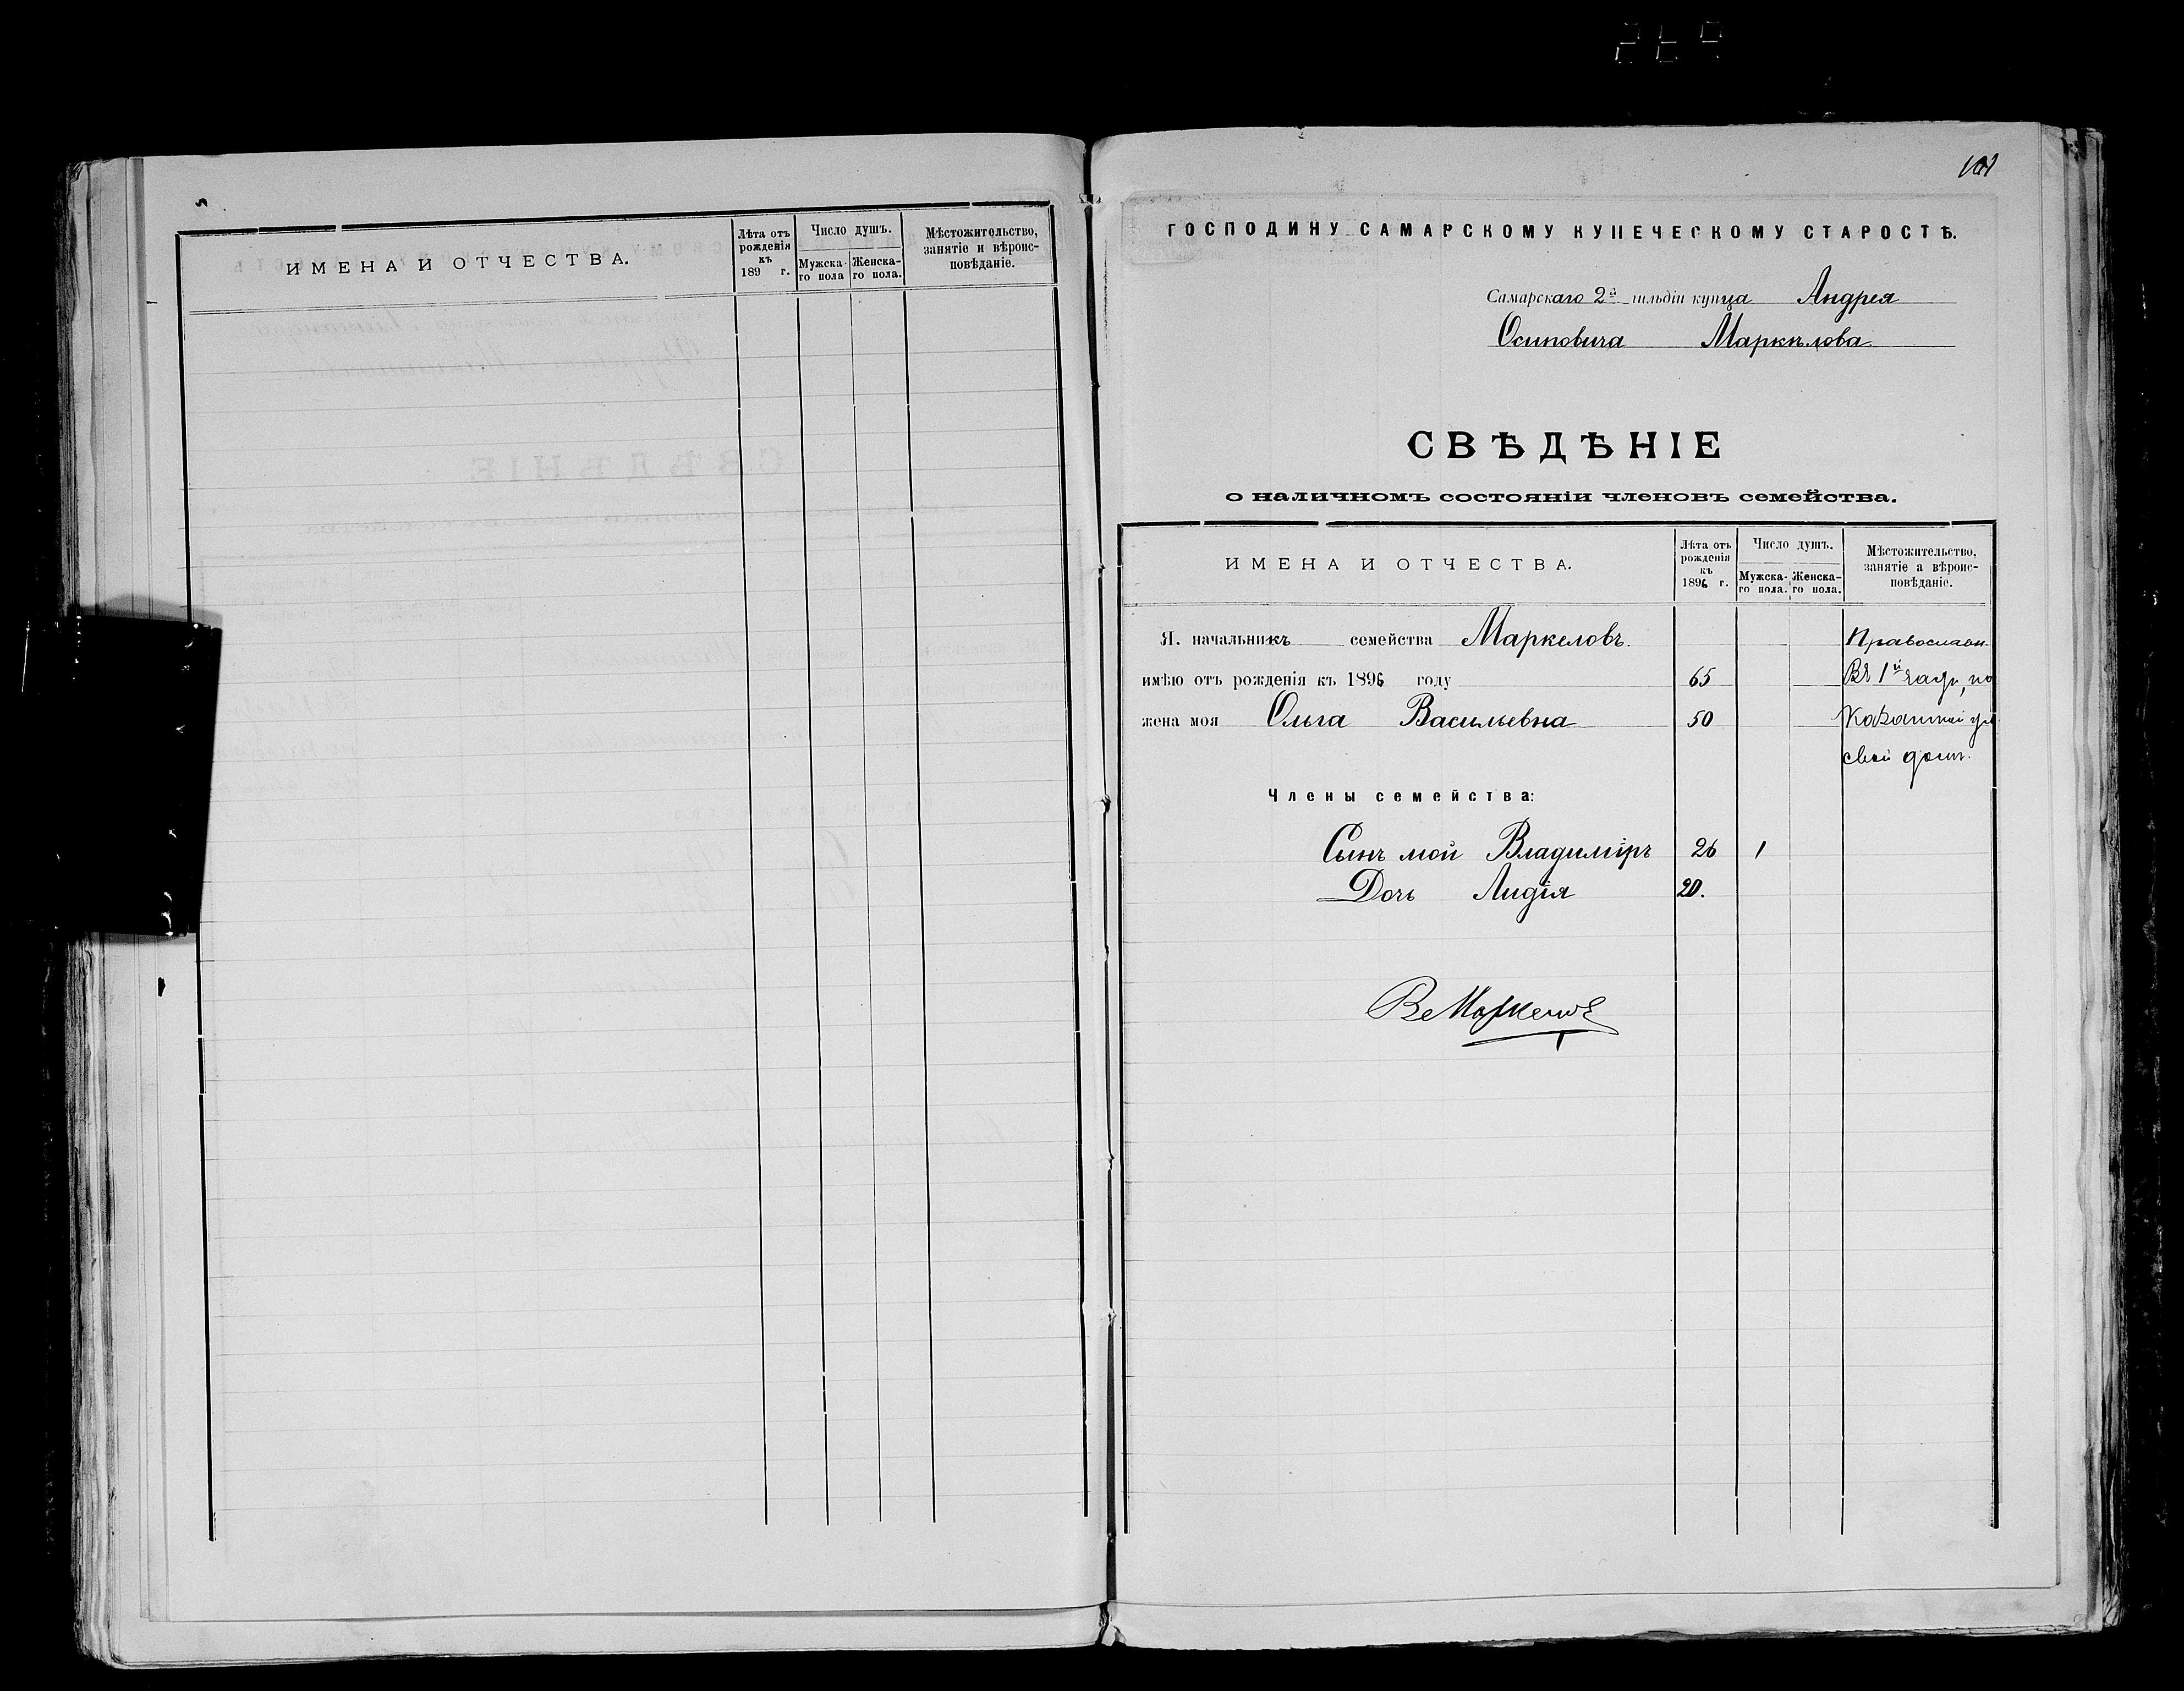 ИМЕНА И ОТЧЕСТВА.
Лѣта отъ рожденія къ 189 г.
Число душъ.
Мужска-го пола
Женска-го пола.
Мѣстожительство, занятіе и вѣроис-повѣданіе.
ГОСПОДИНУ САМАРСКОМУ КУПЕЧЕСКОМУ СТАРОСТѢ.
Самарскаго 2й гильдіи купца Андрея
Осиповича Маркѣлова
СВѢДѢНІЕ
о наличномъ состояніи членовъ семейства.
ИМЕНА И ОТЧЕСТВА.
Лѣта отъ рожденія къ 1896 г.
Число душъ.
Мужска-го пола.
Женска-го пола.
Мѣстожительство, занятіе а вѣроис-повѣданіе.
Я. начальникъ семейства Маркеловъ. Православн.
имѣю отъ рожденія къ 1896 году 65 Въ 1й части, по
жена моя Ольга Васильевна 50 Казанской ул
свой домъ.
Члены семейства:
Сынъ мой Владиміръ 26 1
Дочь Лидія 20.